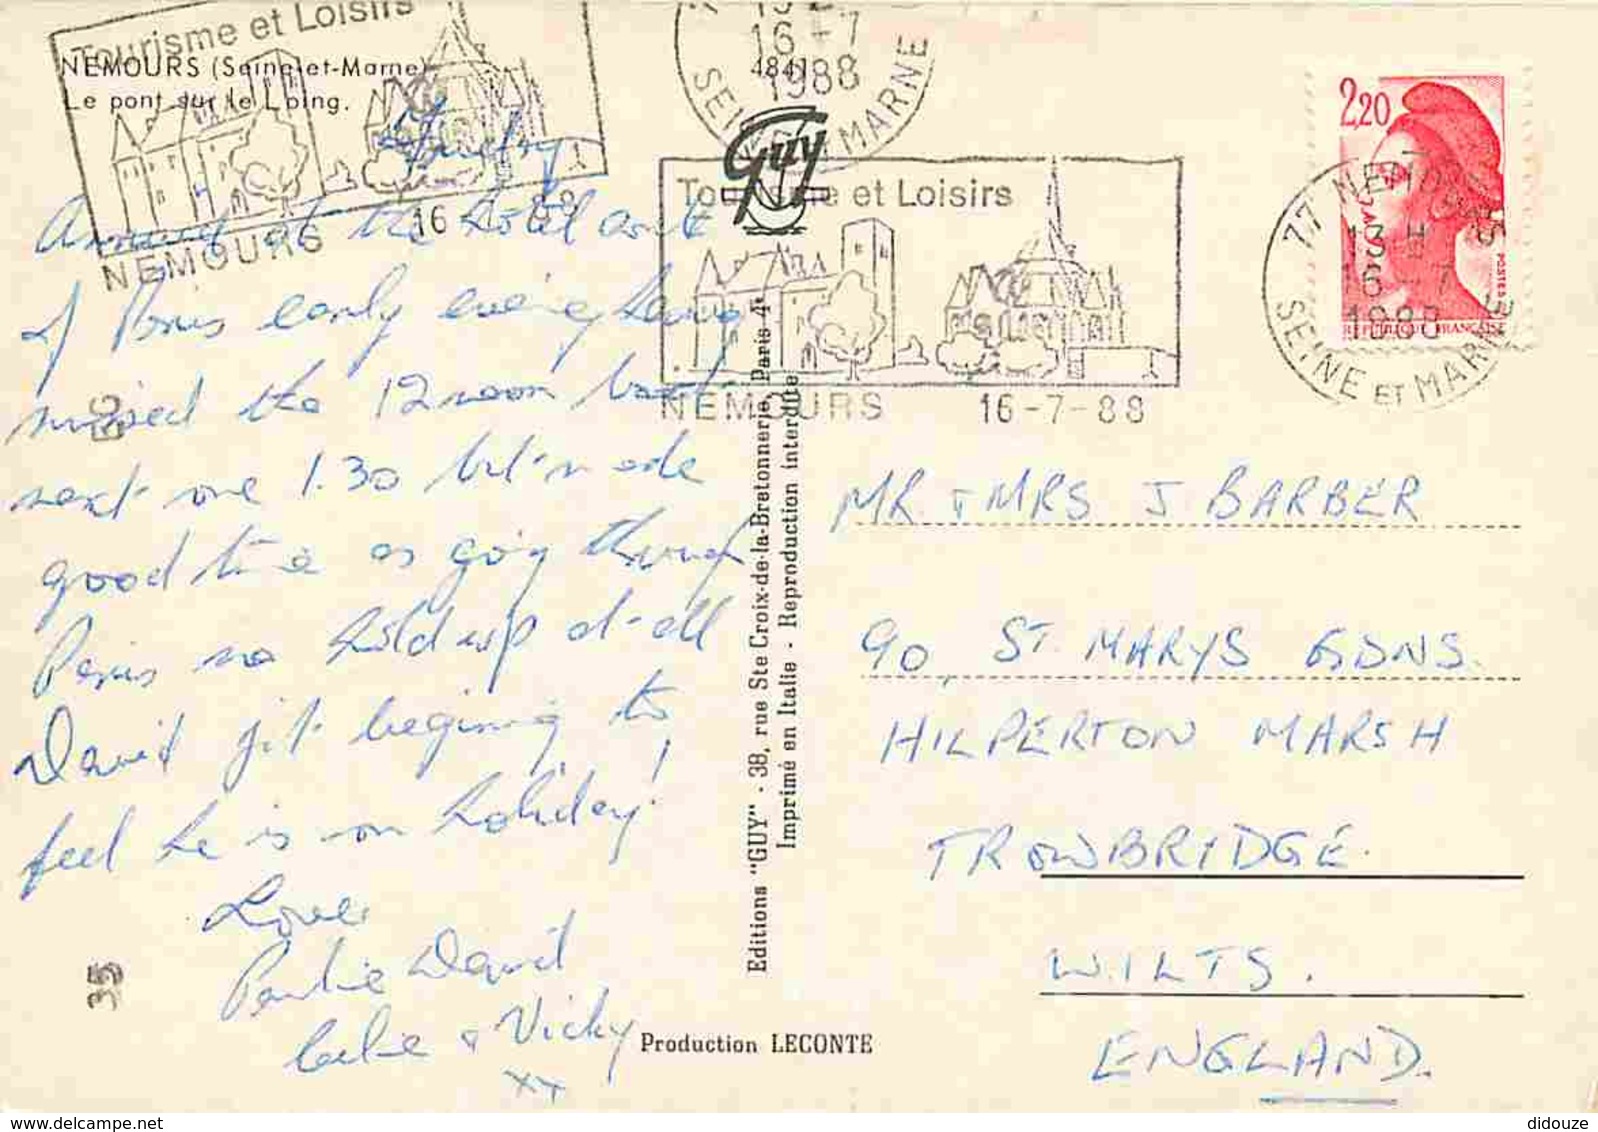 Tourisme et Loisirs
NEMOURS (Seine-et-Marne)
Le pont sur le Loing.
NEMOURS 16 7 88
16-7
1988
4841
SEINE ET MARNE
Guy
Tourisme et Loisirs
NEMOURS 16-7-88
2,20
REPUBLIQUE FRANÇAISE
POSTES
77 NEMOURS
13 H
16-7
1988
SEINE ET MARNE
at the hotel
of Paris early evening having
missed the 12 noon boat
next one 1.30 but made
good time as going through
Paris no hold up at all
David just beginning to
feel he is on holiday!
Love
Pauline David
& Vicky
xx
35
Editions "GUY" - 38, rue Ste Croix-de-la-Bretonnerie, Paris 4e
Imprimé en Italie - Reproduction interdite
Production LECONTE
MR & MRS J BARBER
90, ST. MARYS GDNS.
HILPERTON MARSH
TROWBRIDGE.
WILTS.
ENGLAND.
didouze